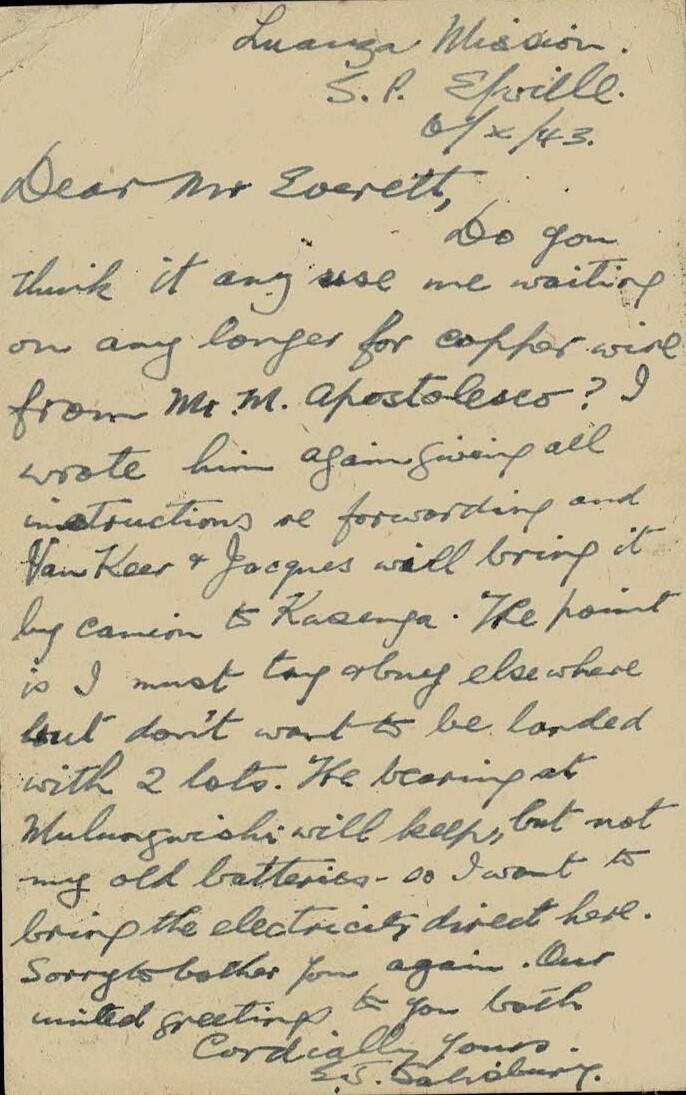 Luanza Mission.
S. P. E/ville.
6/x/43.
Dear Mr Everett,
Do you
think it any use me waiting
on any longer for copper wire
from Mr. M. Apostolesco? I
wrote him again giving all
instructions re forwarding and
Van Keer & Jacques will bring it
by camion to Kasenga. The point
is I must try & buy elsewhere
but don't want to be landed
with 2 lots. The bearing at
Mulungwishi will keep, but not
my old batteries - so I want to
bring the electricity direct here.
Sorry to bother you again. Our
united greetings to you both
Cordially yours.
E.J. Salisbury.